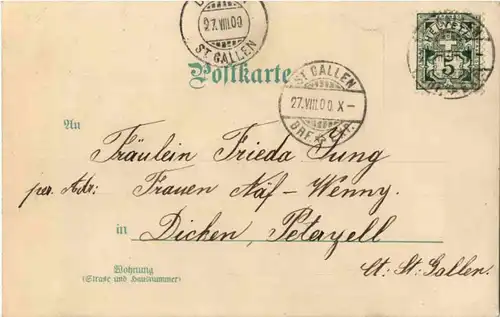 27.VIII.00
ST. GALLEN
HELVETIA
5
Postkarte
ST. GALLEN
27.VIII.00. X-
BRF. EXP.
An
Fräulein Frieda Jung
per. Adr: Frauen Näf-Wenny.
in Dicken, Peterzell
Ct. St. Gallen.
Wohnung
(Strasse und Hausnummer)